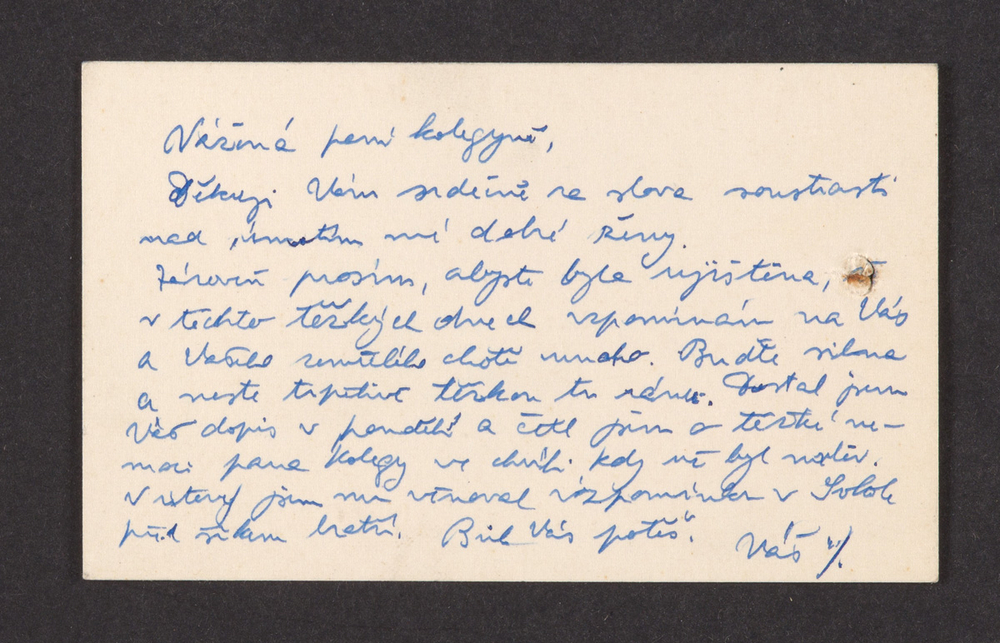 Vážená paní kolegyně,
Děkuji Vám srdečně za slova soustrasti
nad úmrtím mé dobré ženy.
Zároveň prosím, abyste byla ujištěna, že
v těchto těžkých dnech vzpomínám na Vás
a Vašeho zemřelého chotě mnoho. Buďte silna
a neste trpělivě těžkou tu ránu. Dostal jsem
Váš dopis v pondělí a četl jsem o těžké ne-
moci pana kolegy ve chvíli kdy už byl mrtev.
V úterý jsem mu věnoval vzpomínku v Sokole
před šikem bratří. Bůh Vás potěš.
Váš